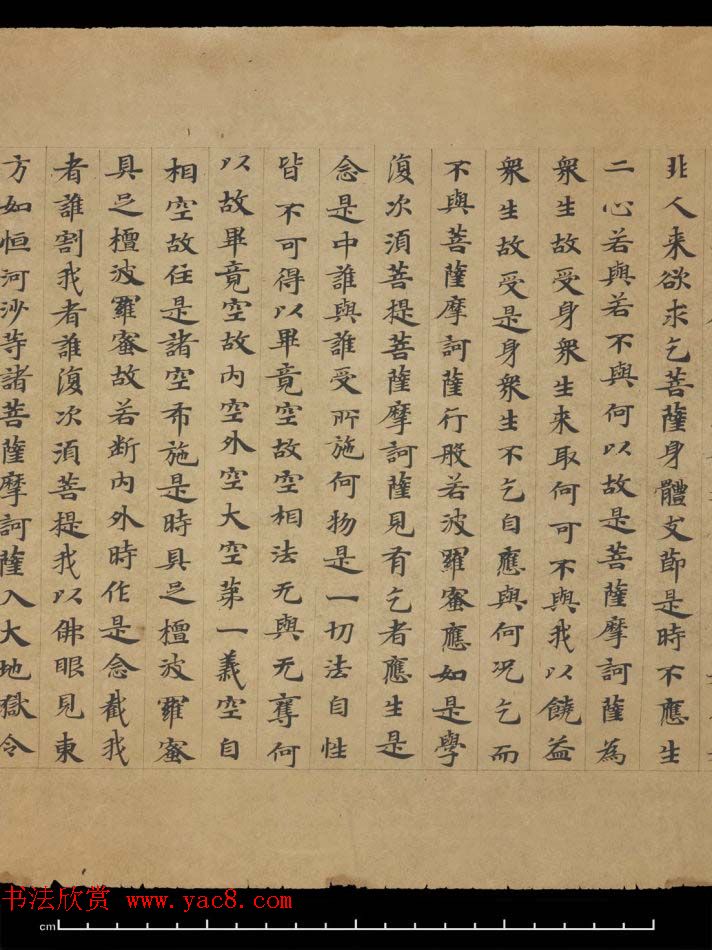 非人来欲求乞菩薩身體支節是時不應生
二心若與若不與何以故是菩薩摩訶薩為
衆生故受身衆生来取何可不與我以饒益
衆生故受是身衆生不乞自應與何况乞而
不與菩薩摩訶薩行般若波羅蜜應如是學
復次須菩提菩薩摩訶薩見有乞者應生是
念是中誰與誰受所施何物是一切法自性
皆不可得以畢竟空故空相法无與无奪何
以故畢竟空故内空外空大空苐一義空自
相空故住是諸空布施是時具足檀波羅蜜
具足檀波羅蜜故若断内外時作是念截我
者誰割我者誰復次須菩提我以佛眼見東
方如恒河沙等諸菩薩摩訶薩入大地獄令
书法欣赏
www.yac8.com
cm